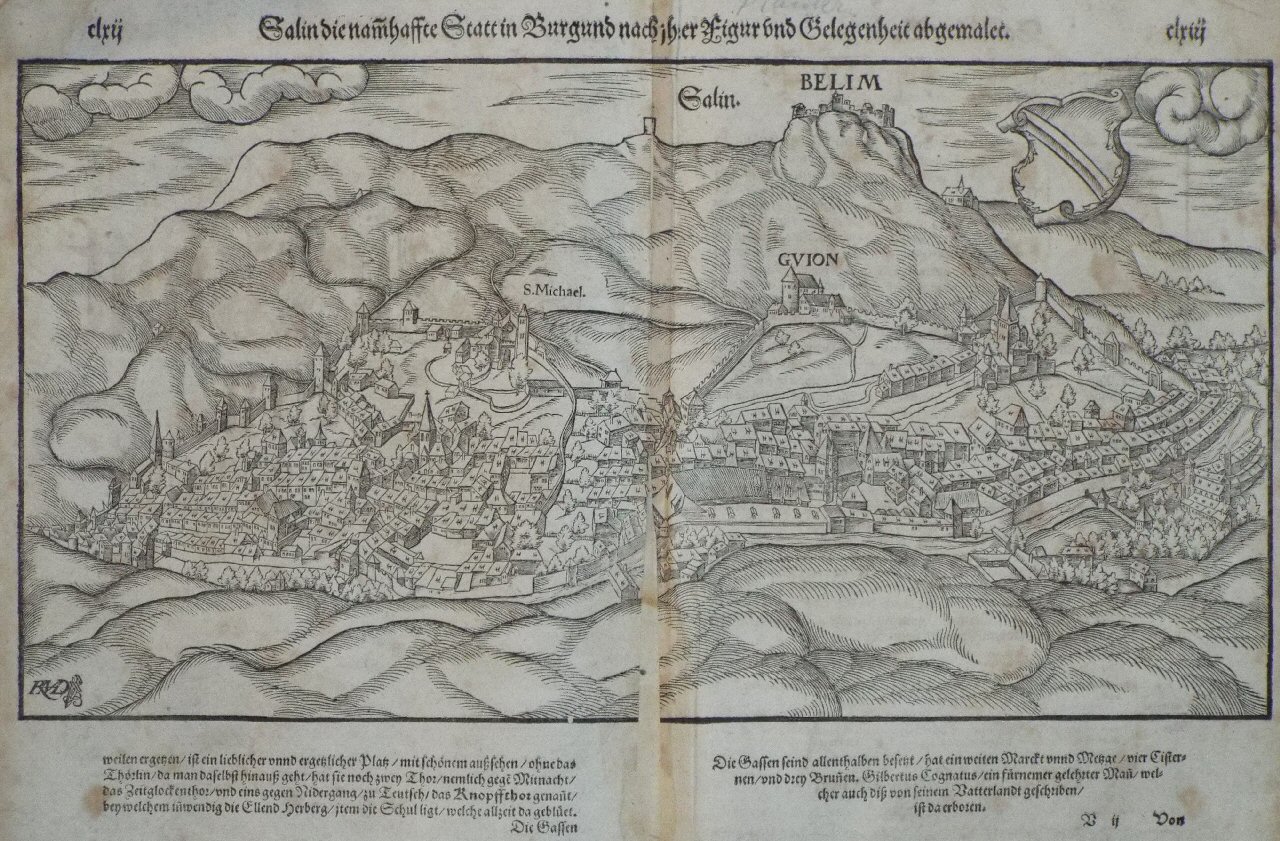 clxij
Salin die nam̄haffte Statt in Burgund nach jhrer Figur vnd Gelegenheit abgemalet.
clxiij
BELIM
Salin.
GVION
S. Michael.
weilen ergetzen / ist ein lieblicher vnnd ergetzlicher Platz / mit schönem außsehen / ohne das
Thörlin / da man daselbst hinauß geht / hat sie noch zwey Thor / nemlich gegē Mitnacht /
das Zeitglockenthor / vnd eins gegen Nidergang / zu Teutsch / das Knopffthor genañt /
bey welchem inwendig die Ellend Herberg / jtem die Schul ligt / welche allzeit da geblüet.
Die Gassen
Die Gassen seind allenthalben besetzt / hat ein weiten Marckt vnnd Metzge / vier Cister-
nen / vnd drey Bruñen. Gilbertus Cognatus / ein fürnemer gelehrter Mañ / wel-
cher auch diß von seinem Vatterlandt geschriben /
ist da erboren.
V ij Von